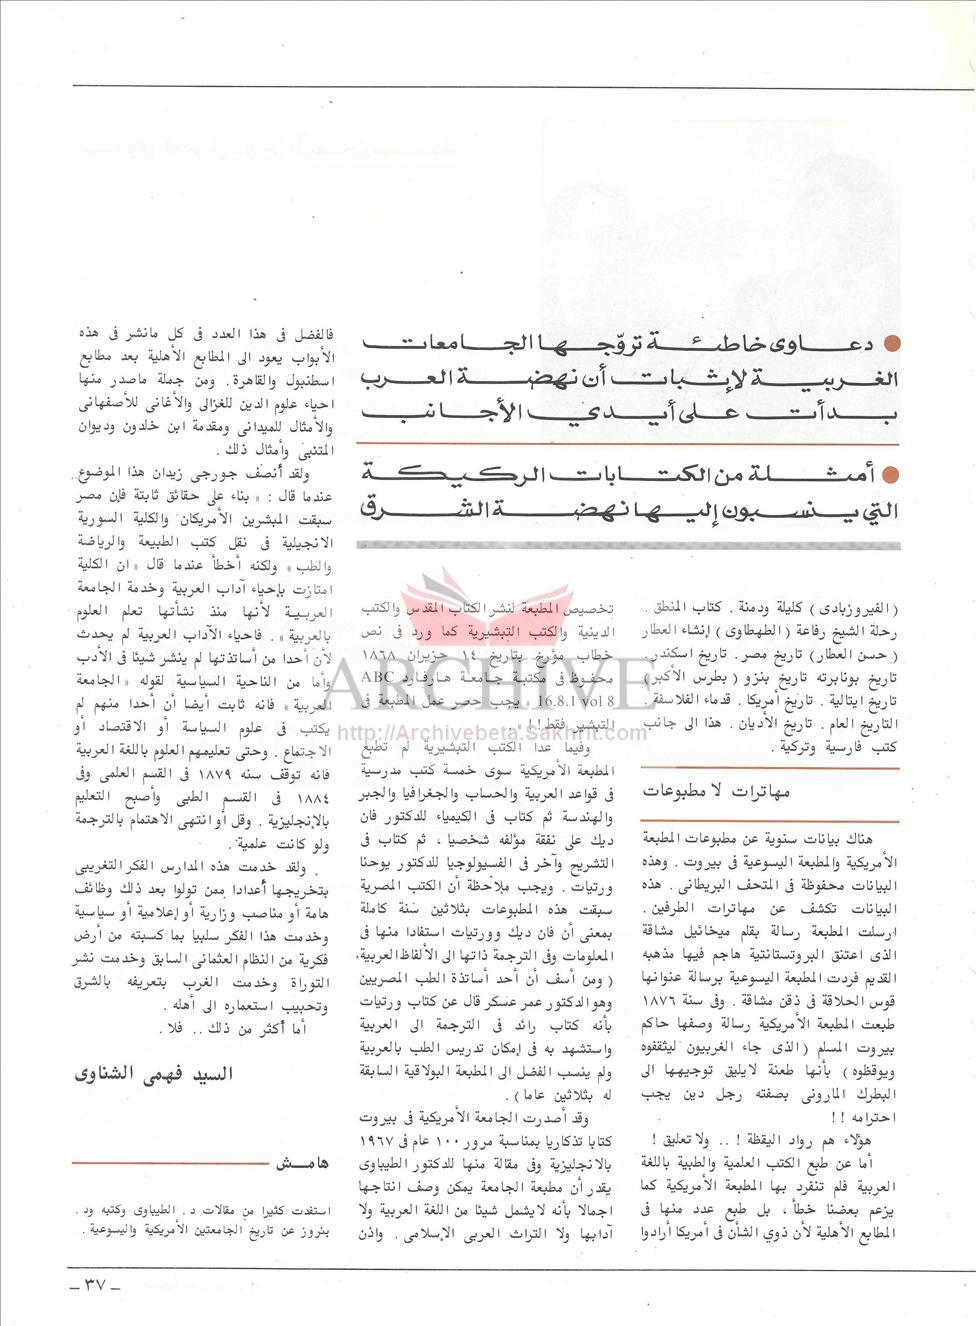 ● دعاوى خاطئة تروّجها الجامعات
الغربية لإثبات أن نهضة العرب
بدأت على أيدي الأجانب
● أمثلة من الكتابات الركيكة
التي ينسبون إليها نهضة الشرق
( الفيروزبادى ) كليلة ودمنة . كتاب المنطق .
رحلة الشيخ رفاعة ( الطهطاوى ) إنشاء العطار
( حسن العطار ) تاريخ مصر . تاريخ اسكندر .
تاريخ بونابرته تاريخ بنزو ( بطرس الأكبر )
تاريخ ايتالية . تاريخ أمريكا . قدماء الفلاسفة .
التاريخ العام . تاريخ الأديان . هذا الى جانب
كتب فارسية وتركية .
مهاترات لا مطبوعات
هناك بيانات سنوية عن مطبوعات المطبعة
الأمريكية والمطبعة اليسوعية فى بيروت . وهذه
البيانات محفوظة فى المتحف البريطانى . هذه
البيانات تكشف عن مهاترات الطرفين .
ارسلت المطبعة رسالة بقلم ميخائيل مشاقة
الذى اعتنق البروتستانتية هاجم فيها مذهبه
القديم فردت المطبعة اليسوعية برسالة عنوانها
قوس الحلاقة فى ذقن مشاقة . وفى سنة ١٨٧٦
طبعت المطبعة الأمريكية رسالة وصفها حاكم
بيروت المسلم ( الذى جاء الغربيون ليثقفوه
ويوقظوه ) بأنها طعنة لايليق توجيهها الى
البطرك المارونى بصفته رجل دين يجب
احترامه !!
هؤلاء هم رواد اليقظة ! .. ولا تعليق !
أما عن طبع الكتب العلمية والطبية باللغة
العربية فلم تنفرد بها المطبعة الأمريكية كما
يزعم بعضنا خطأ ، بل طبع عدد منها فى
المطابع الأهلية لأن ذوي الشأن فى أمريكا أرادوا
تخصيص المطبعة لنشر الكتاب المقدس والكتب
الدينية والكتب التبشيرية كما ورد فى نص
خطاب مؤرخ بتاريخ ١٤ حزيران ١٨٦٨
محفوظ فى مكتبة جامعة هارفارد ABC
16.8.1 vol 8 . يجب حصر عمل المطبعة فى
التبشير فقط !!
وفيما عدا الكتب التبشيرية لم تطبع
المطبعة الأمريكية سوى خمسة كتب مدرسية
فى قواعد العربية والحساب والجغرافيا والجبر
والهندسة ثم كتاب فى الكيمياء للدكتور فان
ديك على نفقة مؤلفه شخصيا ، ثم كتاب فى
التشريح وآخر فى الفسيولوجيا للدكتور يوحنا
ورتبات . ويجب ملاحظة أن الكتب المصرية
سبقت هذه المطبوعات بثلاثين سنة كاملة
بمعنى أن فان ديك وورتبات استفادا منها فى
المعلومات وفى الترجمة ذاتها الى الألفاظ العربية.
( ومن أسف أن أحد أساتذة الطب المصريين
وهو الدكتور عمر عسكر قال عن كتاب ورتبات
بأنه كتاب رائد فى الترجمة الى العربية
واستشهد به فى إمكان تدريس الطب بالعربية
ولم ينسب الفضل الى المطبعة البولاقية السابقة
له بثلاثين عاما ) .
وقد أصدرت الجامعة الأمريكية فى بيروت
كتابا تذكاريا بمناسبة مرور ١٠٠ عام فى ١٩٦٧
بالانجليزية وفى مقالة منها للدكتور الطيباوى
يقدر أن مطبعة الجامعة يمكن وصف انتاجها
اجمالا بأنه لايشمل شيئا من اللغة العربية ولا
آدابها ولا التراث العربى الإسلامى . واذن
فالفضل فى هذا العدد فى كل مانشر فى هذه
الأبواب يعود الى المطابع الأهلية بعد مطابع
اسطنبول والقاهرة . ومن جملة ماصدر منها
احياء علوم الدين للغزالى والأغانى للأصفهانى
والأمثال للميدانى ومقدمة ابن خلدون وديوان
المتنبى وأمثال ذلك .
ولقد أنصف جورجى زيدان هذا الموضوع
عندما قال : « بناء على حقائق ثابتة فإن مصر
سبقت المبشرين الأمريكان والكلية السورية
الانجيلية فى نقل كتب الطبيعة والرياضة
والطب » ولكنه أخطأ عندما قال « ان الكلية
امتازت بإحياء آداب العربية وخدمة الجامعة
العربية لأنها منذ نشأتها تعلم العلوم
بالعربية » . فاحياء الآداب العربية لم يحدث
لأن أحدا من أساتذتها لم ينشر شيئا فى الأدب
وأما من الناحية السياسية لقوله « الجامعة
العربية » فانه ثابت أيضا أن أحدا منهم لم
يكتب فى علوم السياسة أو الاقتصاد أو
الاجتماع . وحتى تعليمهم العلوم باللغة العربية
فانه توقف سنه ١٨٧٩ فى القسم العلمى وفى
١٨٨٤ فى القسم الطبى وأصبح التعليم
بالإنجليزية . وقل أو انتهى الاهتمام بالترجمة
ولو كانت علمية .
ولقد خدمت هذه المدارس الفكر التغريبى
بتخريجها أعدادا ممن تولوا بعد ذلك وظائف
هامة أو مناصب وزارية أو إعلامية أو سياسية
وخدمت هذا الفكر سلبيا بما كسبته من أرض
فكرية من النظام العثمانى السابق وخدمت نشر
التوراة وخدمت الغرب بتعريفه بالشرق
وتحبيب استعماره الى أهله .
أما أكثر من ذلك .. فلا .
السيد فهمى الشناوى
هامش
استفدت كثيرا من مقالات د . الطيباوى وكتبه ود .
بنروز عن تاريخ الجامعتين الأمريكية واليسوعية .
ـ ٣٧ ـ
ARCHIVE
http://Archivebeta.Sakhrit.com